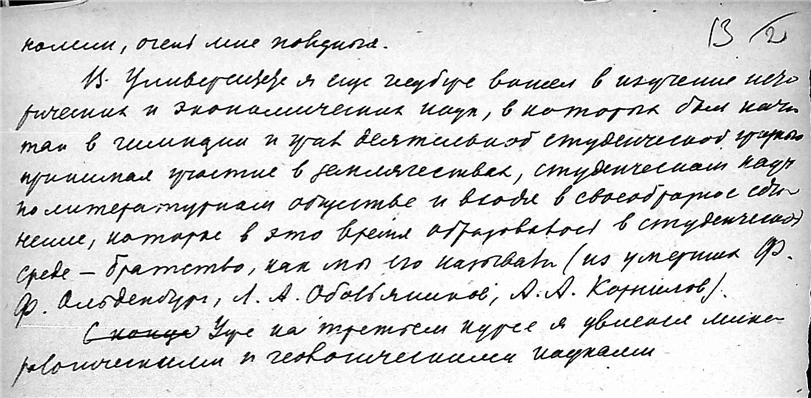 13/2
нами, очень мне повидная.
В Университете я еще глубже вошел в изучение исто-
рических и экономических наук, в которых был начи-
тан в гимназии и жил деятельной студенческой жизнью
принимая участие в землячествах, студенческом науч-
но литературном обществе и входя в своеобразное еди-
нение, которое в это время образовалось в студенческой
среде – братство, как мы его называли (из умерших Ф.
Ф. Ольденбург, Л. А. Обольянинов, А. А. Корнилов).
С конца Уже на третьем курсе я увлекся мине-
ралогическими и геологическими науками